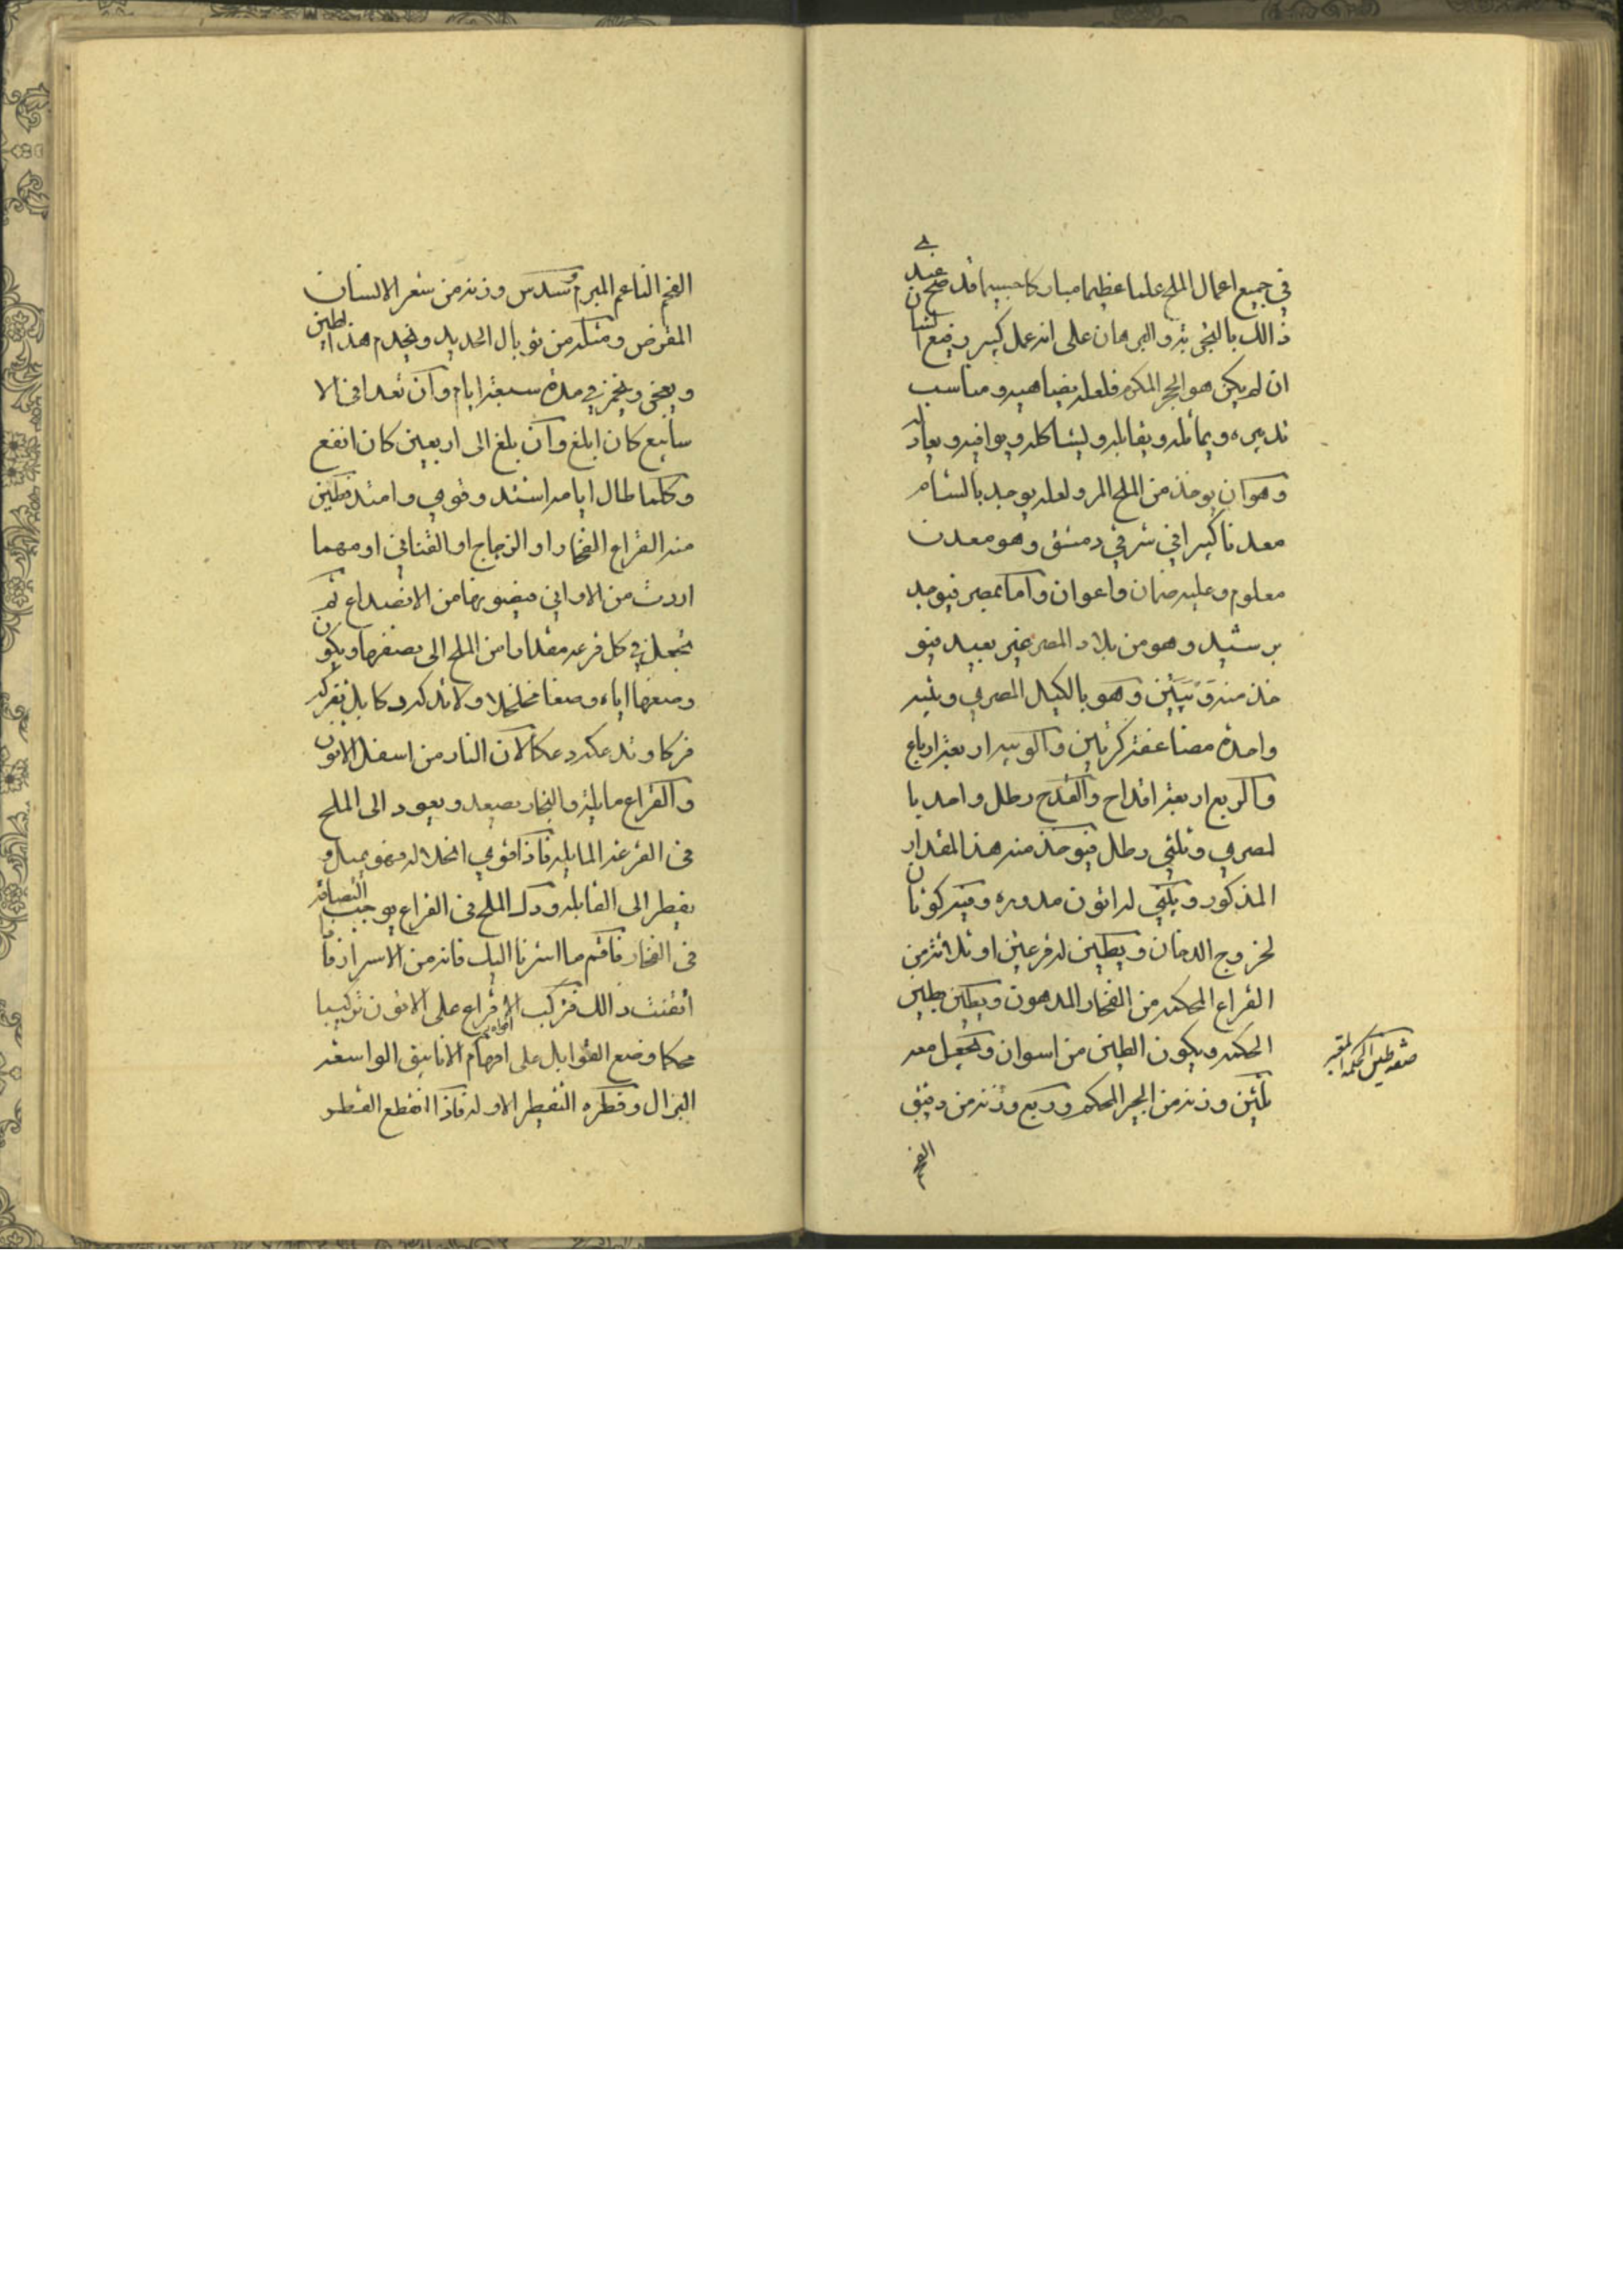 في جميع اعمال الملح علما عظيما مباركا حسبما قد صح عندي
ذالك بالتجربة والبرهان على انه عمل كبير رفيع الشان
ان لم يكن هو الحجر المكرم فلعله يضاهيه ومناسب
تدبيره ويماثله ويقابله ويشاكله ويوافيه ويعادله
وهو ان يوخذ من الملح المر ولعله يوجد بالشام
معدنا كبيرا في شرقي دمشق وهو معدن
معلوم وعليه ضمان واعوان واما بمصر فيوجد
برشيد وهو من بلاد المصر غير بعيد فيو
خذ منه وَيْبَتَيْن وهو بالكيل المصري ويبه
واحدة مضاعفة كرتين والويبه اربعة ارباع
والربع اربعة اقداح والقدح رطل واحد با
لمصري وثلثي رطل فيوخذ منه هذا المقدار
المذكور ويبني له اتون مدوره وفيه كوتان
لخروج الدخان ويطين له قرعتين او ثلاثة من
القراع المحكمه من الفخار المدهون ويطين بطين
الحكمه ويكون الطين من اسوان ويجعل معه
ثلثين وزنه من الجير المحكم وربع وزنه من دقيق
الفحم
صفة طين الحكمة المعتبر
الفحم الناعم المبرم وسدس وزنه من شعر الانسان
المقرض ومثله من توبال الحديد ويخدم هذا الطين
ويعجن ويخمر في مدة سبعة ايام وان تعدا في الا
سابيع كان ابلغ وان بلغ الى اربعين كان انفع
وكلما طال ايامه اشتد وقوي وامتد فطين
منه القراع الفخار او الزجاج او القناني او مهما
اردت من الاواني فيصونها من الانصداع ثم
تجعل في كل قرعه مقدارا من الملح الى نصفها ويكون
وضعها اياه وضعا مخلخلا ولا تدكه دكا بل تفركه
فركا وتدعكه دعكا لان النار من اسفل الاتون
والقراع مايلة والبخار يصعد ويعود الى الملح
في القرعه المايله فاذا قوي انحلاله فهو يميل و
يقطر الى القابله ودك الملح في القراع يوجب التصاقه
في الفخار فافهم ما اشرنا اليك فانه من الاسرار فا
اتقنت ذالك فركب الاقراع على الاتون تركيبا
محكما وضع القوابل على افهام الانابيق الواسعه
افواه
البزال وقطره التقطير الاوله فاذا انقطع القطر